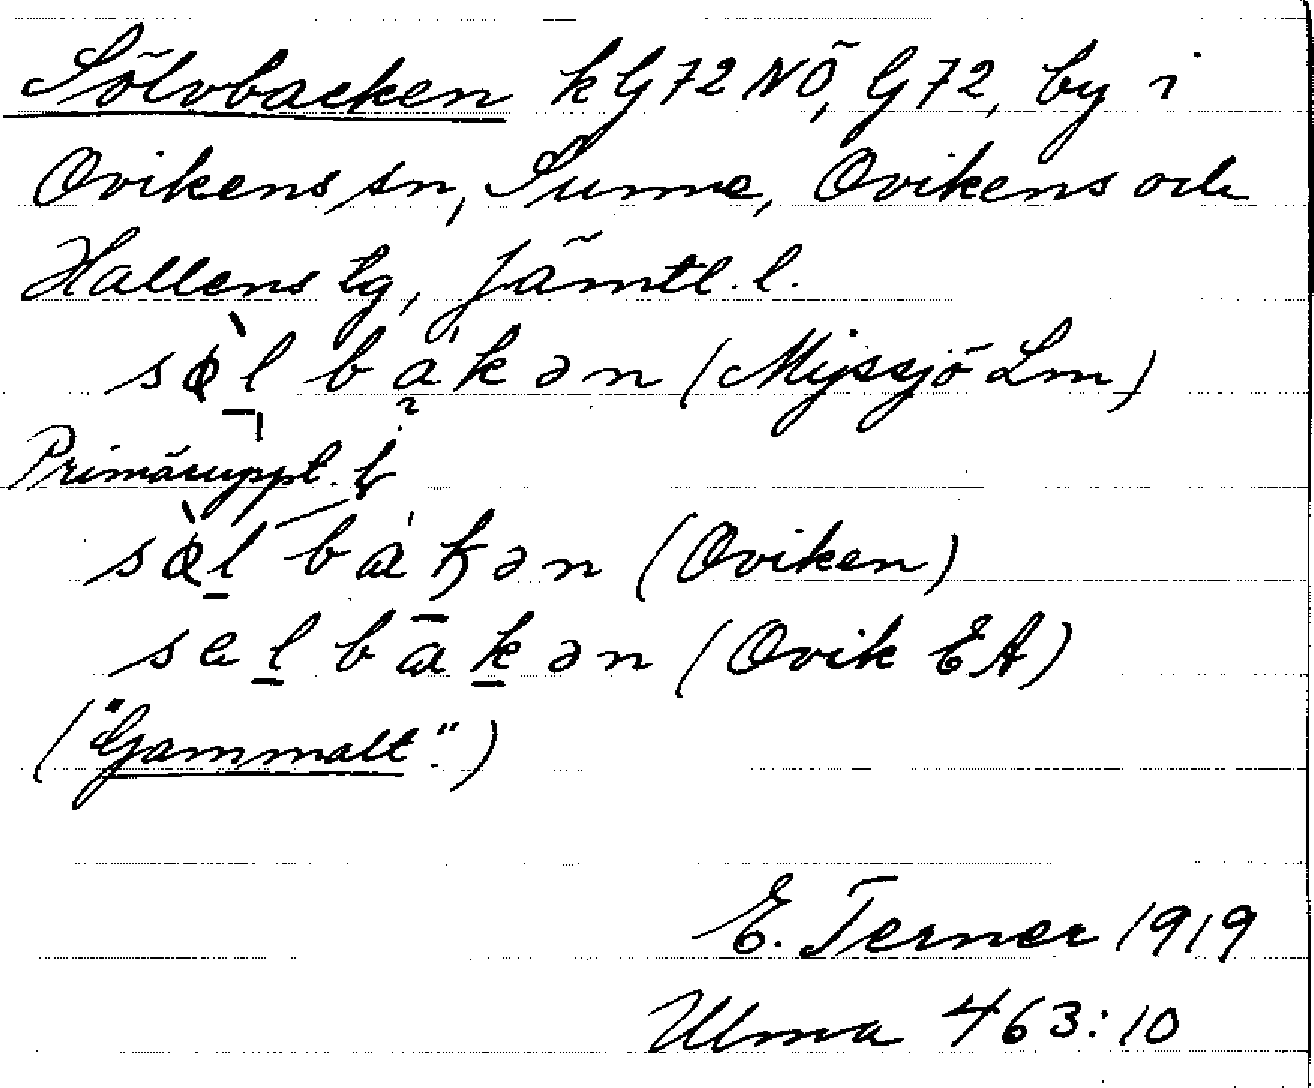 Sölvbacken k G 72 NÖ, G 72, by i
Ovikens sn, Sunne, Ovikens och
Hallens tg, Jämtl. l.
sø̀l bákən (Myssjö Lm)
Primäruppt. b
sø̀l bákən (Oviken)
sal bakən (Ovik EA)
("Gammalt".)
E. Terner 1919
Ulma 463:10